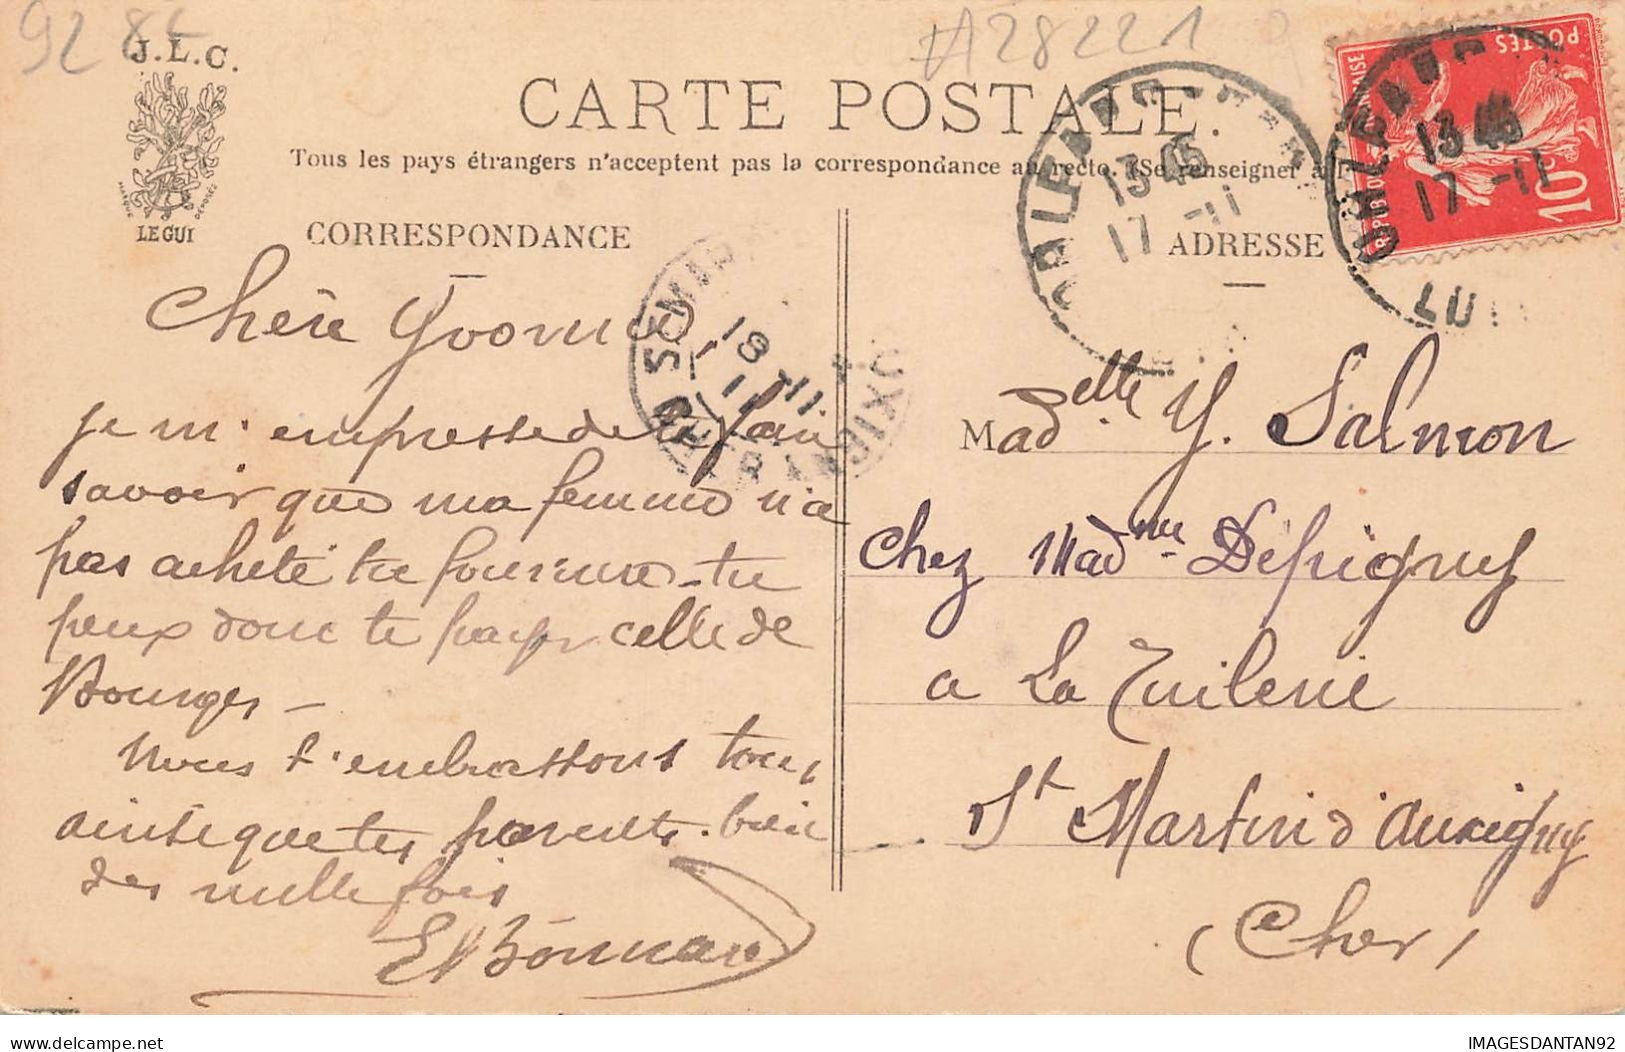 92 86
A28221
J.L.C.
MARQUE DÉPOSÉE
LE GUI
CARTE POSTALE.
Tous les pays étrangers n'acceptent pas la correspondance au recto. (Se renseigner à l
CORRESPONDANCE
ADRESSE
POSTES
10c
13 45
17 -11
13 45
17 -11
18 -11
11
Chère Yvonne,
je m'empresse de te faire
savoir que ma femme n'a
pas acheté ta fourrure - tu
peux donc te payer celle de
Bourges -
Nous t'embrassons tous,
ainsi que tes parents. bien
des mille fois
EBonnard
Madelle Y. Salmon
Chez Madme Dépigny
a La Tuilerie
St Martin d'Auxigny
(Cher)
IMAGESDANTAN92